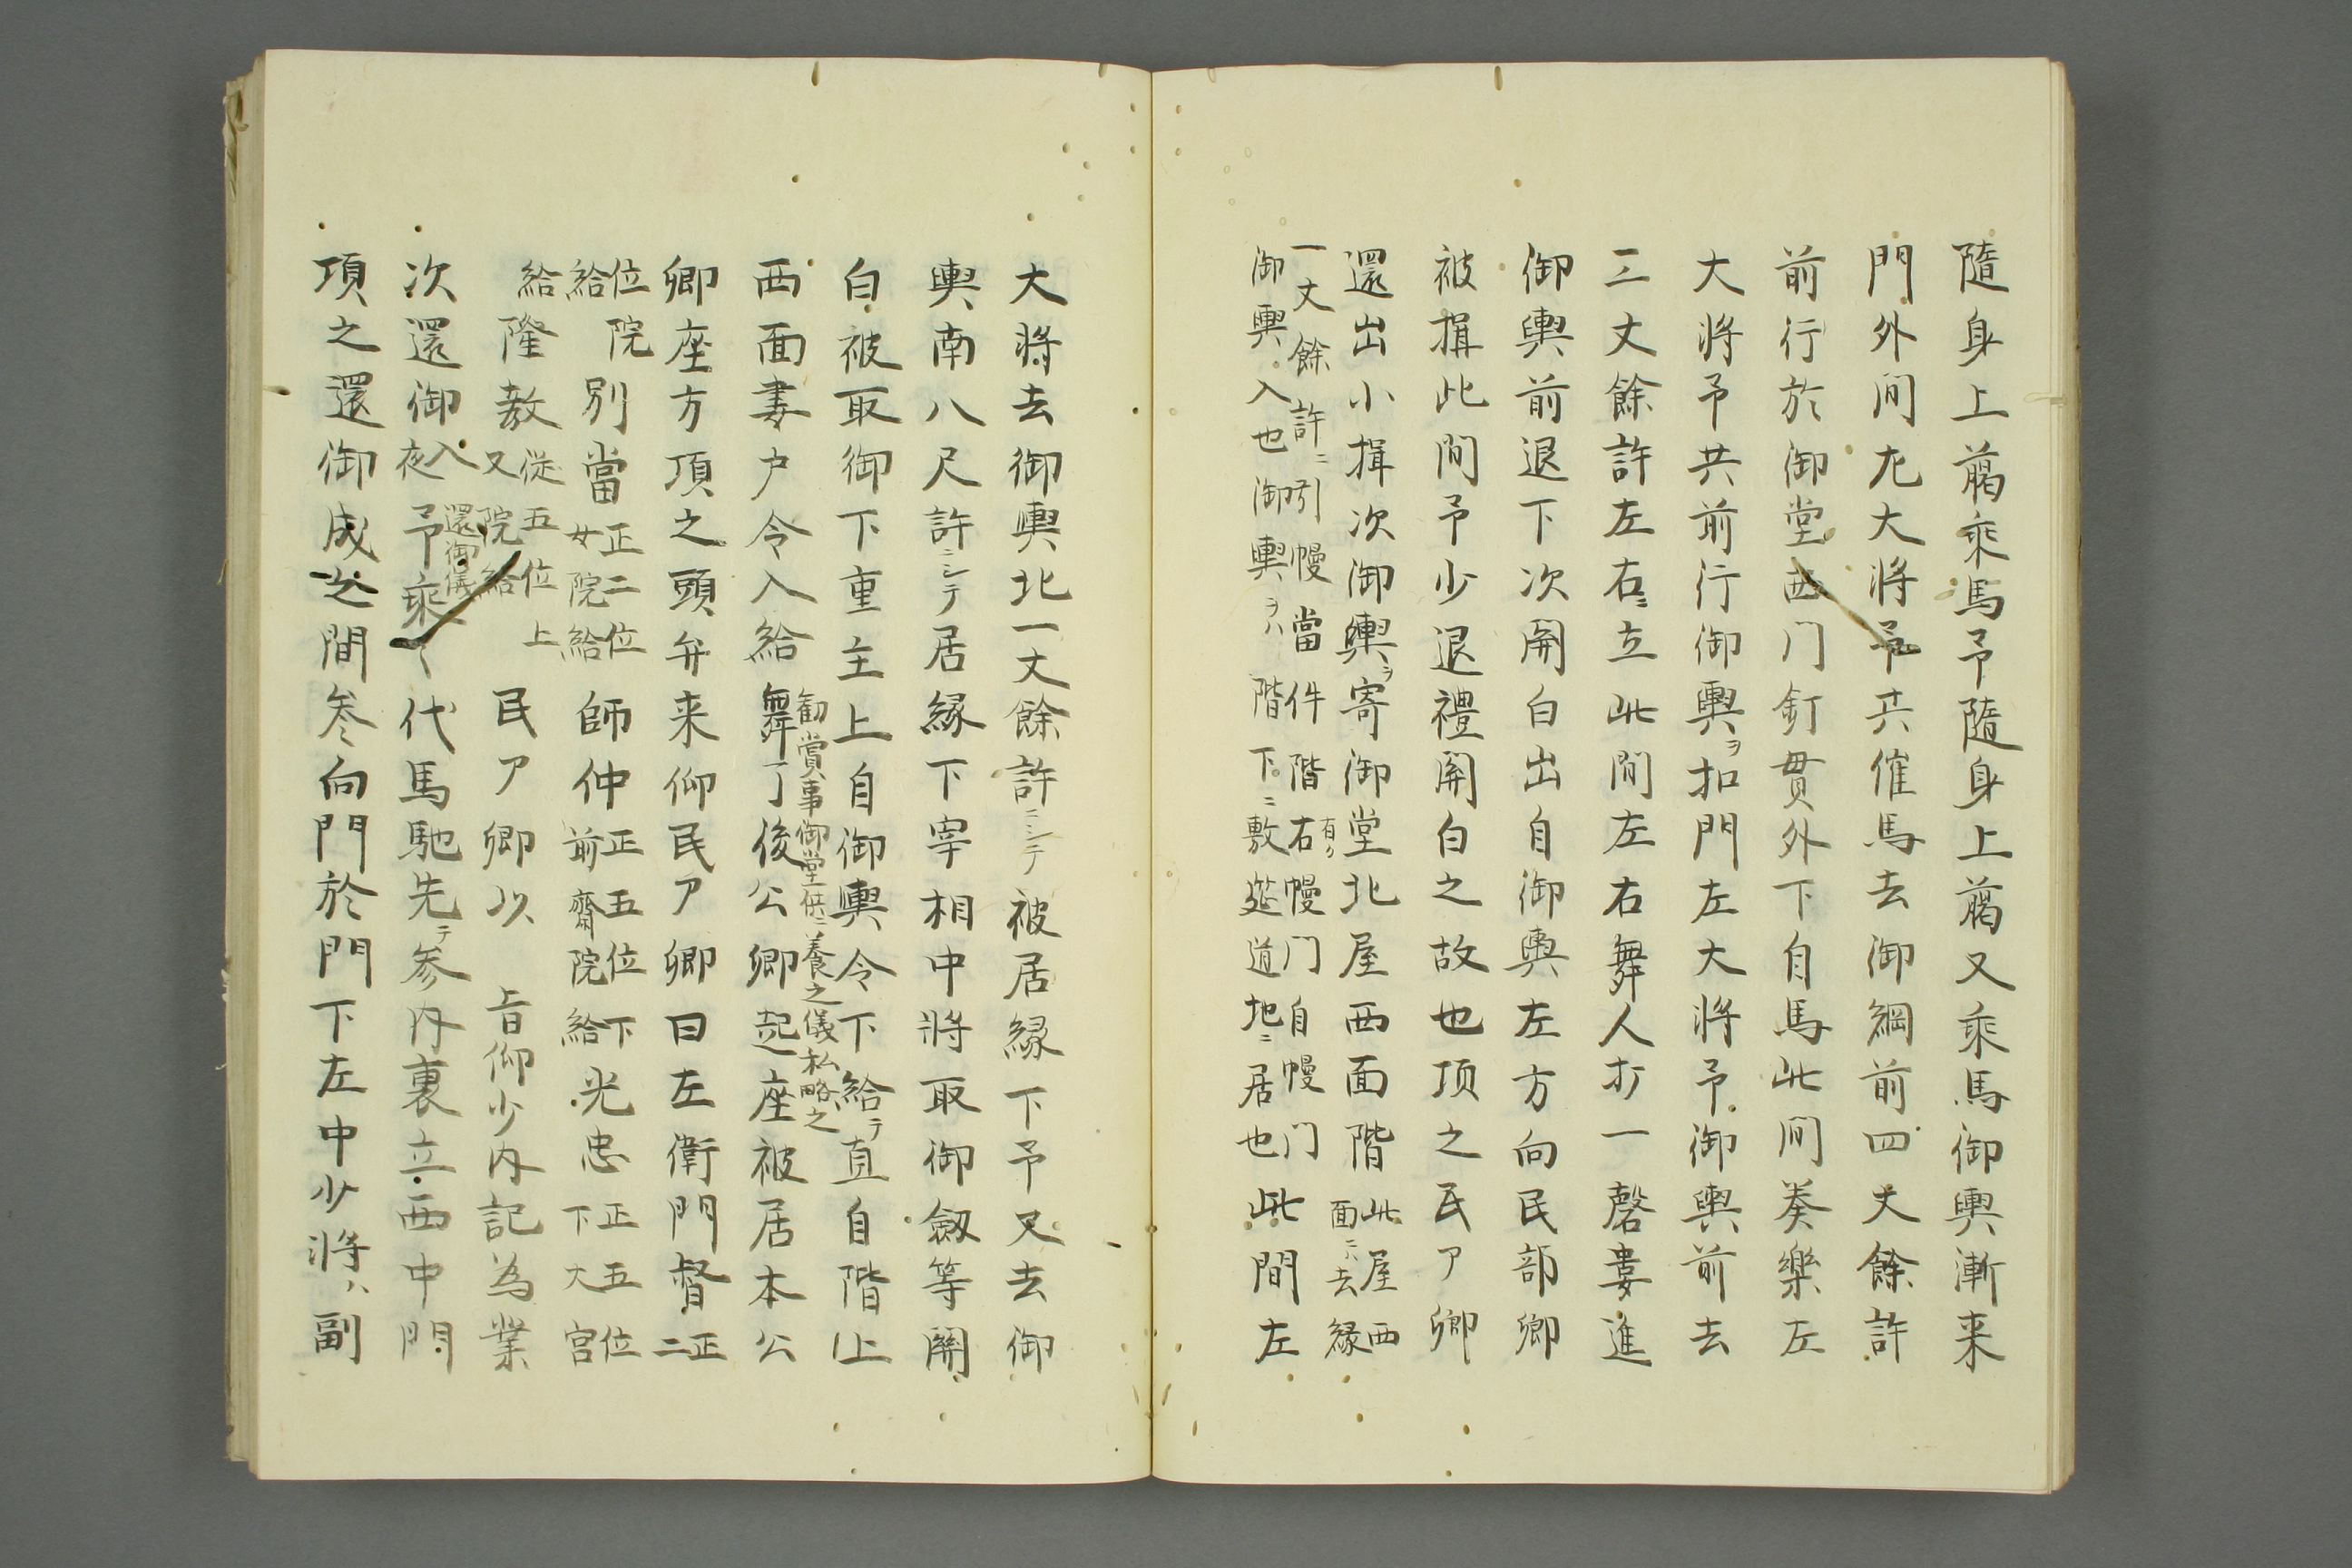 隨身上﨟乘馬予隨身上﨟又乘馬御輿漸来
門外间尤大将予共催馬去御綱前四丈餘許
前行於御堂西门釘貫外下自馬此间奏樂左
大将予共前行御輿ヲ扣門左大将予御輿前去
三丈餘許左右ニ立此间左右舞人打一磬妻進
御輿前退下次関白出自御輿左方向民部卿
被揖此间予少退禮関白之故也頃之民ア卿
還出小揖次御輿ヲ寄御堂北屋西面階此屋西面ニハ去縁
一丈餘許ニ引幔當件階右有リ幔门自幔门
御輿入也御輿ヲハ階下ニ敷莚道地ニ居也此間左
大将去御輿北一丈餘許ニシテ被居縁下予又去御
輿南八尺許ニシテ居縁下宰相中将取御劔等関
白被取御下重主上自御輿令下給テ直自階上
西面妻户令入給
勧賞事御堂供養之儀私略之
舞了後公卿起座被居本公
卿座方頃之頭弁来仰民ア卿曰左衛門督正二
位院別當正二位女院給師仲正五位下前齋院給光忠正五位下大宮
給隆教従五位上又院給民ア卿以旨仰少内記為業
還御儀
次還御入夜予乘代馬馳先テ参内裏立西中門
頃之還御成之間参向門於門下左中少将ハ副